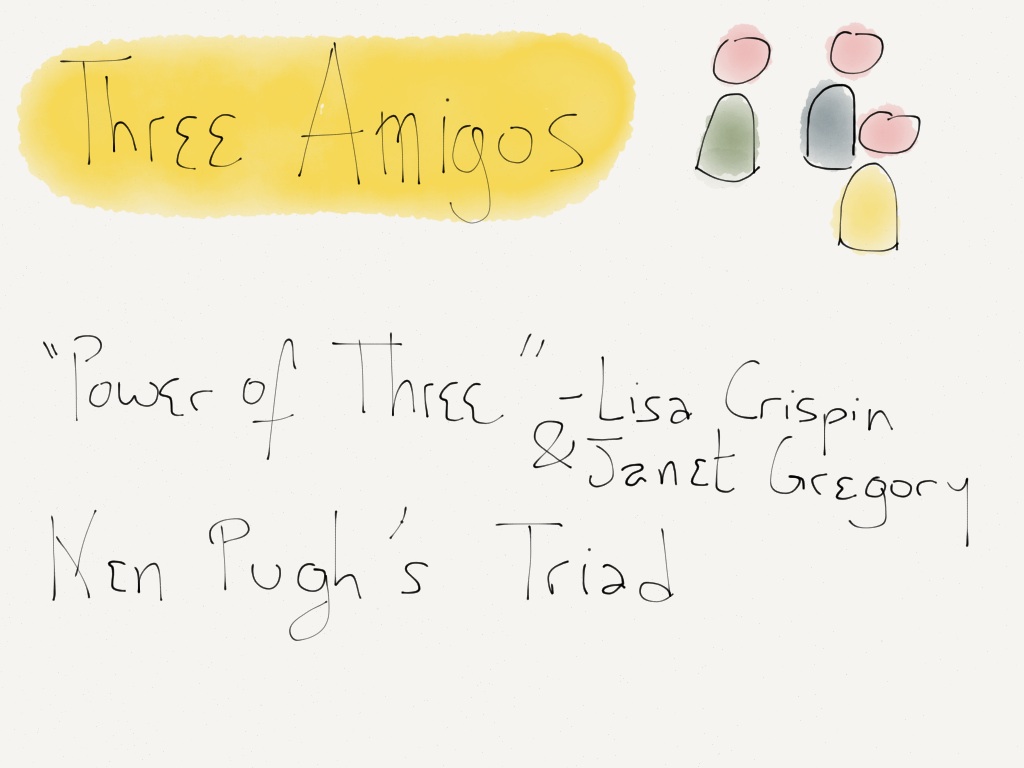 Three Amigos
"Power of Three" - Lisa Crispin
& Janet Gregory
Ken Pugh's Triad